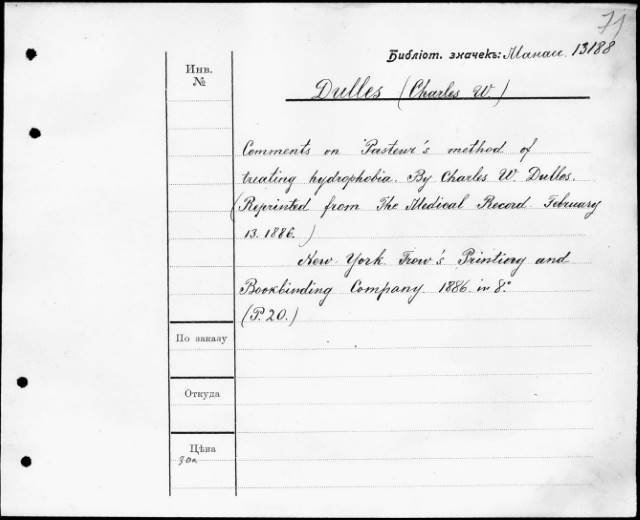 71
Библіот. значекъ: Манас. 13188
Инв.
№
Dulles (Charles W)
Comments on Pasteur's method of
treating hydrophobia. By Charles W. Dulles.
(Reprinted from The Medical Record February
13. 1886.)
New York. Trow's Printing and
Bookbinding Company. 1886. in 8.°
(P. 20.)
По заказу
Откуда
Цѣна